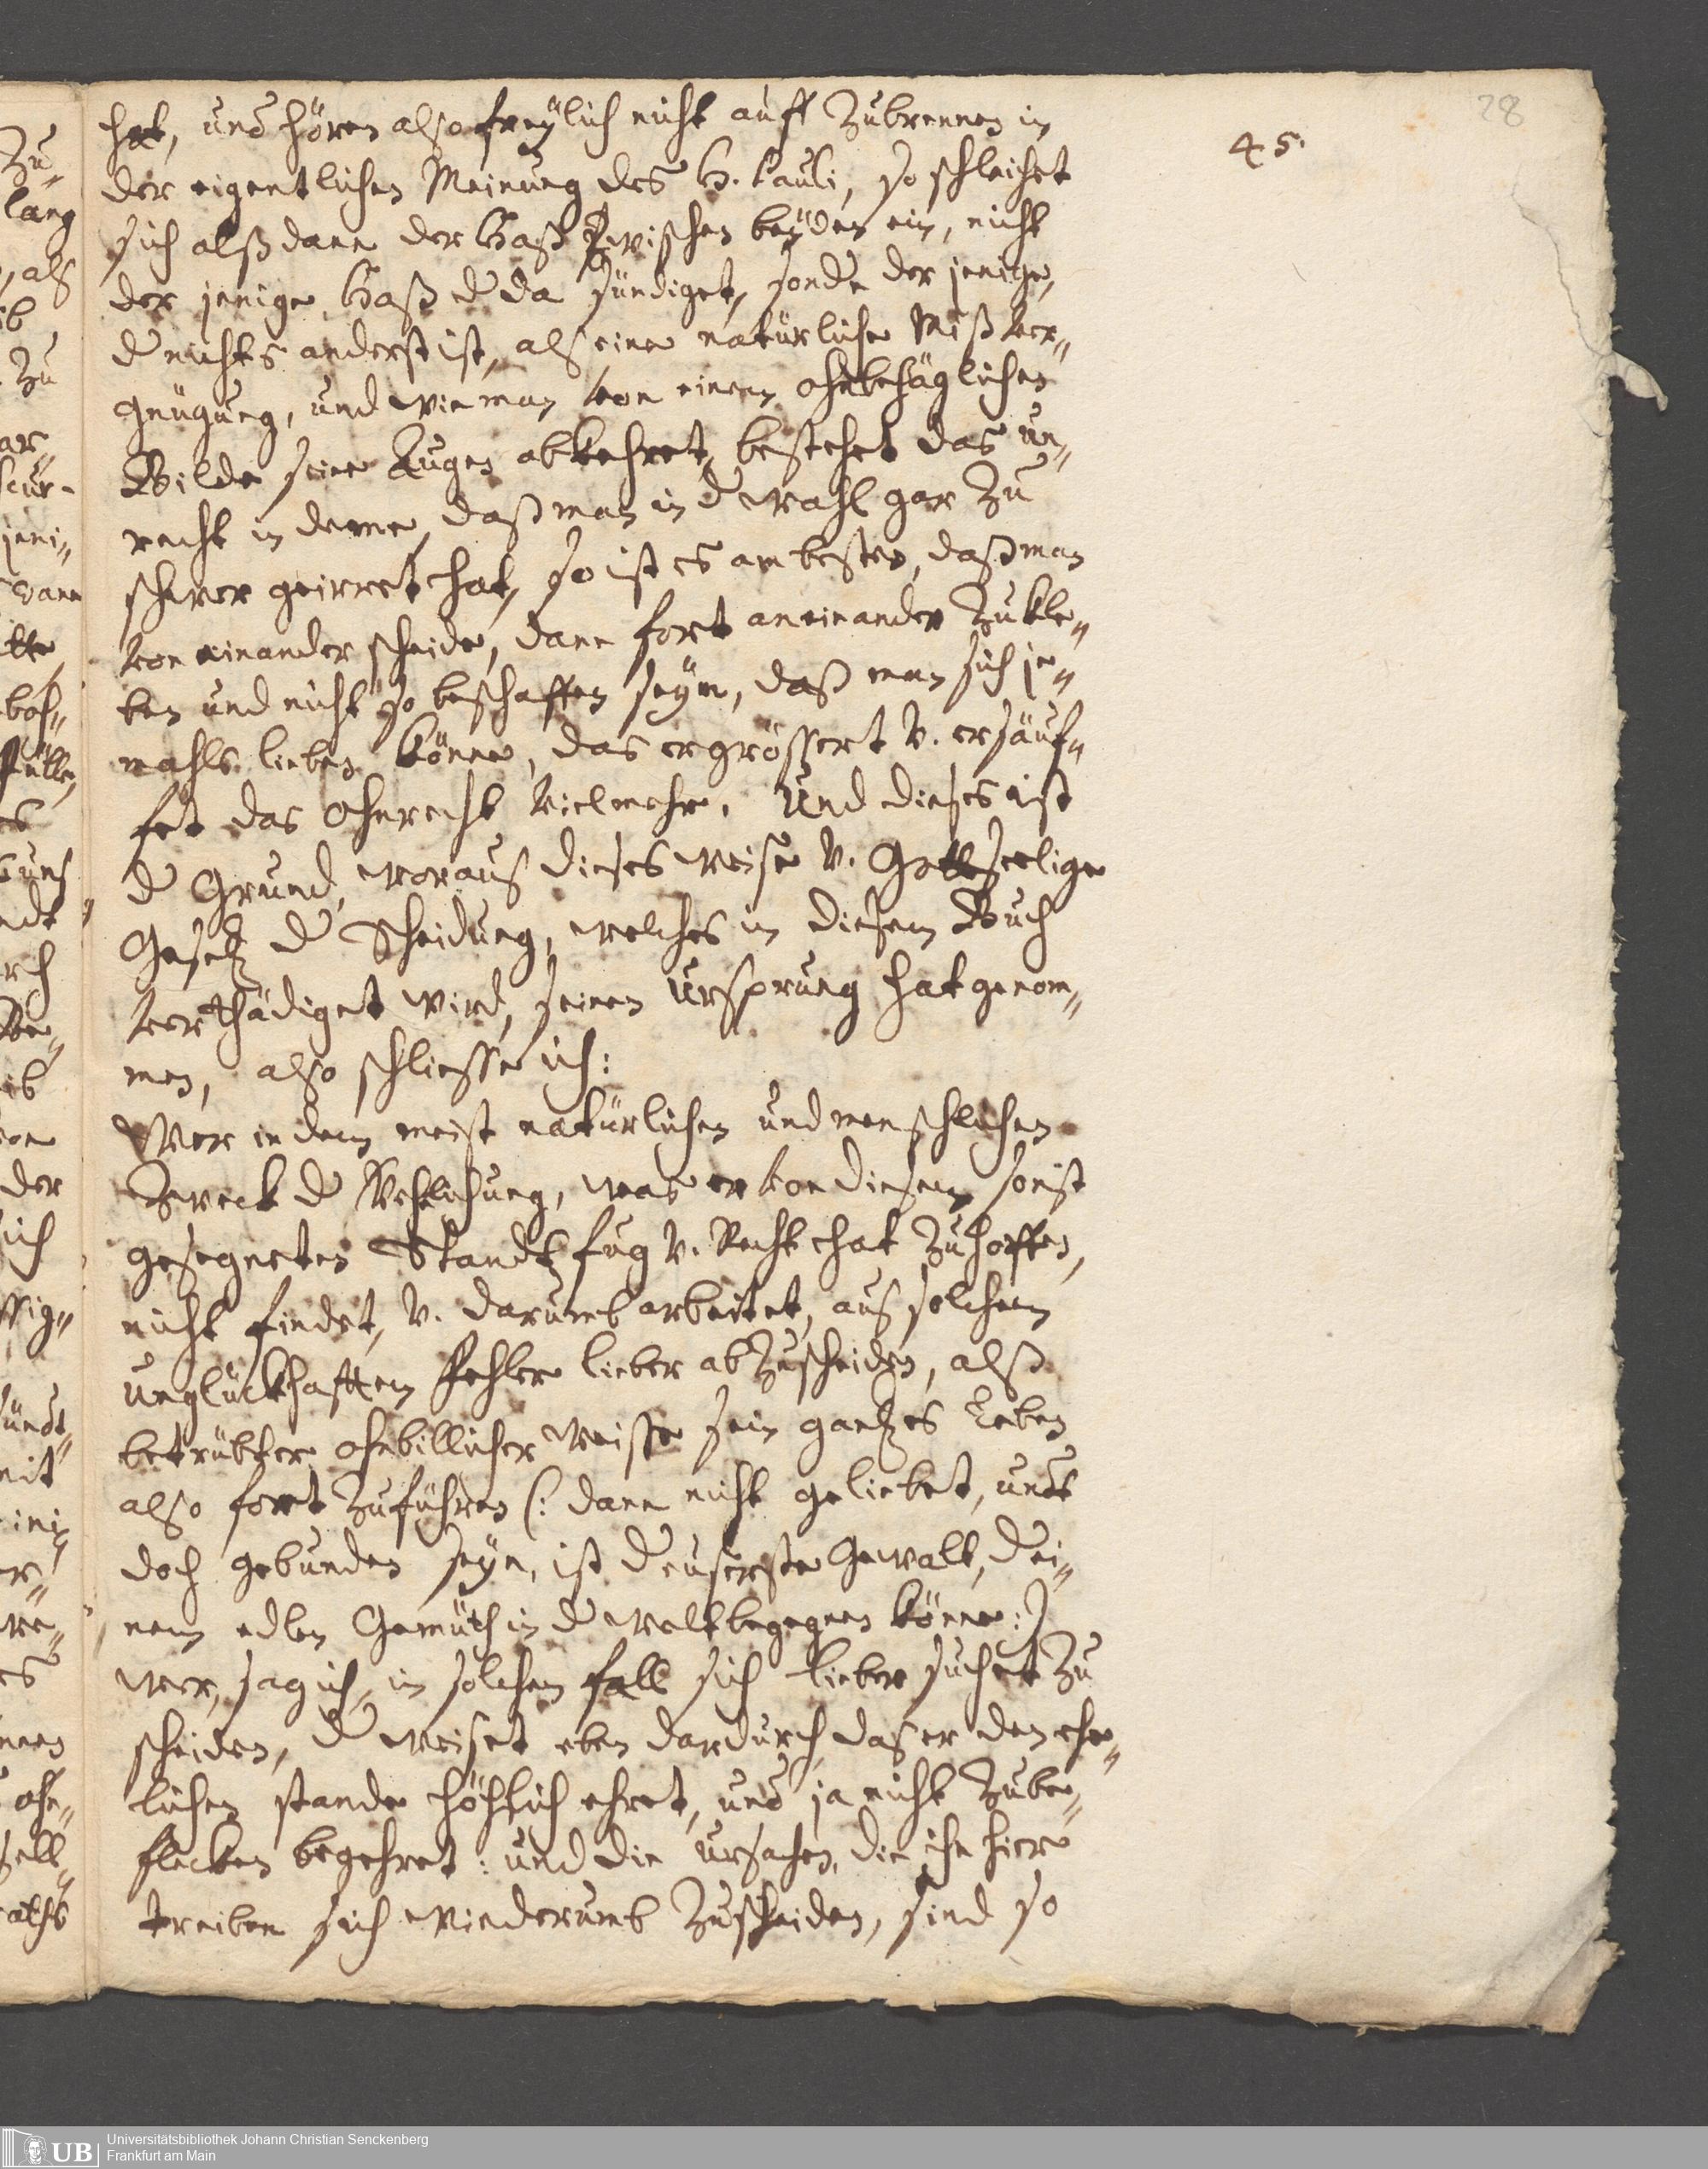 28
45.
hat, und hören also freÿlich nicht auff zubrennen in
der eigentlichen Meinung des H. Pauli, so schleichet
sich alßdann der Haß Zwischen beÿden ein, nicht
der jenige Haß d da sündiget, sondn der jenige,
d nichts anderst ist, als eine natürliche Mißver„
gnügung, und wie man von einem ohnbehäglichen
Bilde seine Augen abkehret, bestehet das un„
recht in deme, daß man in d wahl gar zu
schwer geirret hat, so ist es am besten, daß man
von einander scheide, dann fort aneinander zukle„
ben und nicht so beschaffen seÿn, daß man sich je„
mahls lieben könne, das ergrössert v. ersäuf„
fet das ohnrecht vielmehr. Und dieses ist
d Grund, woraus dieses weise v. Gottseelige
Gesetz d Scheidung, welches in diesem Buch
verthädiget wird, seinen Ursprung hat genom„
men, also schliesse ich:
Wer in dem meist natürlichen und menschlichen
Zweck d Ehlichung, was er von diesem sonst
gesegneten Standtz fug v. Recht hat zuhoffen,
nicht findet, v. darumb arbeitet, aus solchem
unglückhafftem Fehler lieber abzuscheiden, alß
betrübter ohnbillicher Weisse sein gantzes Leben
also fort zuführen (: dann nicht geliebet, undt
doch gebunden seÿn, ist d euserste Gewalt, d ei„
nem edlen Gemüth in d welt begegnen könne :)
wer, sag ich, in solchem fall sich lieber suchet zu
scheiden, d weiset eben dardurch das er den ehe„
lichen stande höchlich ehret, und ja nicht zube„
flecken begehret: und die ursachen, die ihn hier
treiben sich wiederumb zuscheiden, sind so
UB
Universitätsbibliothek Johann Christian Senckenberg
Frankfurt am Main